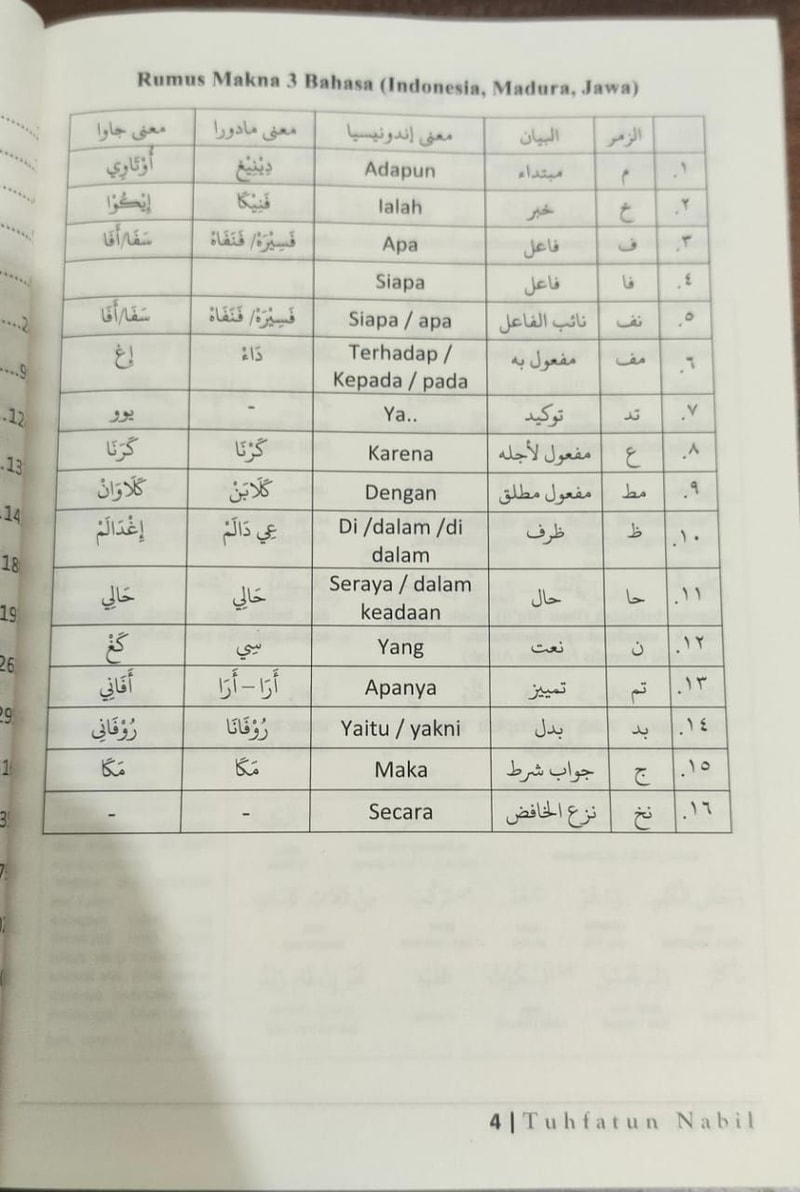 Rumus Makna 3 Bahasa (Indonesia, Madura, Jawa)
الرمز البيان معنى إندونيسيا معنى مادورا معنى جاوا
١. م مبتداء Adapun دِيْنِيْڠ أُوْتَاوِي
٢. خ خبر Ialah فَنِيْكَا إِيْكُوْا
٣. ف فاعل Apa فَسِيْرَهْ/ فَنَفَاهْ سَفَا/أَفَا
٤. فا فاعل Siapa
٥. نف نائب الفاعل Siapa / apa فَسِيْرَهْ/ فَنَفَاهْ سَفَا/أَفَا
٦. مف مفعول به Terhadap / Kepada / pada دَاءْ إِغ
٧. تد توكيد Ya.. -
٨. ع مفعول لأجله Karena كَرْنَا كَرَنَا
٩. مط مفعول مطلق Dengan كَلَابَنْ كَلَاوَانْ
١٠. ظ ظرف Di /dalam /di dalam عِي دَالَمْ إِغْدَالَمْ
١١. حا حال Seraya / dalam keadaan حَالِي حَالِي
١٢. ن نعت Yang سِي كَڠْ
١٣. تم تمييز Apanya أَرَا – أَرَا أَفَانِي
١٤. بد بدل Yaitu / yakni رُوْفَانَا رُوْفَانِى
١٥. ج جواب شرط Maka مَكَا مَكَا
١٦. نخ نزع الخافض Secara - -
4 | Tuhfatun Nabil